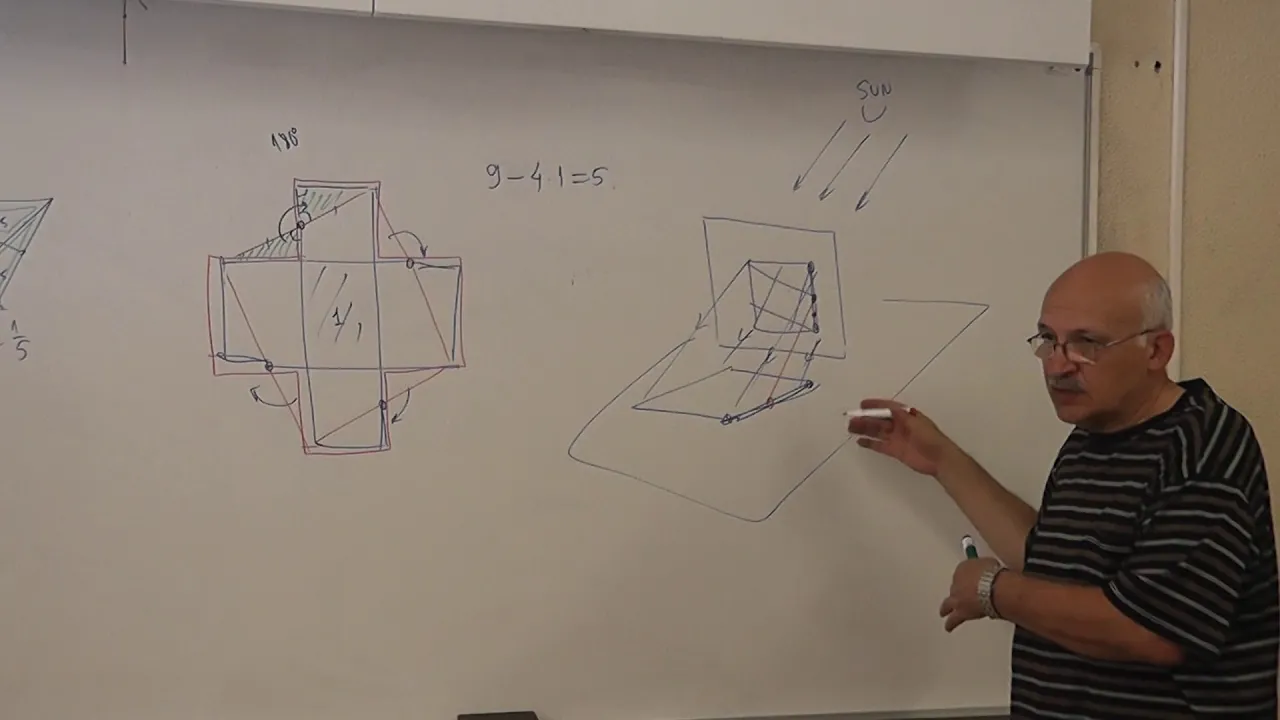 180°
9-4·1=5
SUN
1
1/5